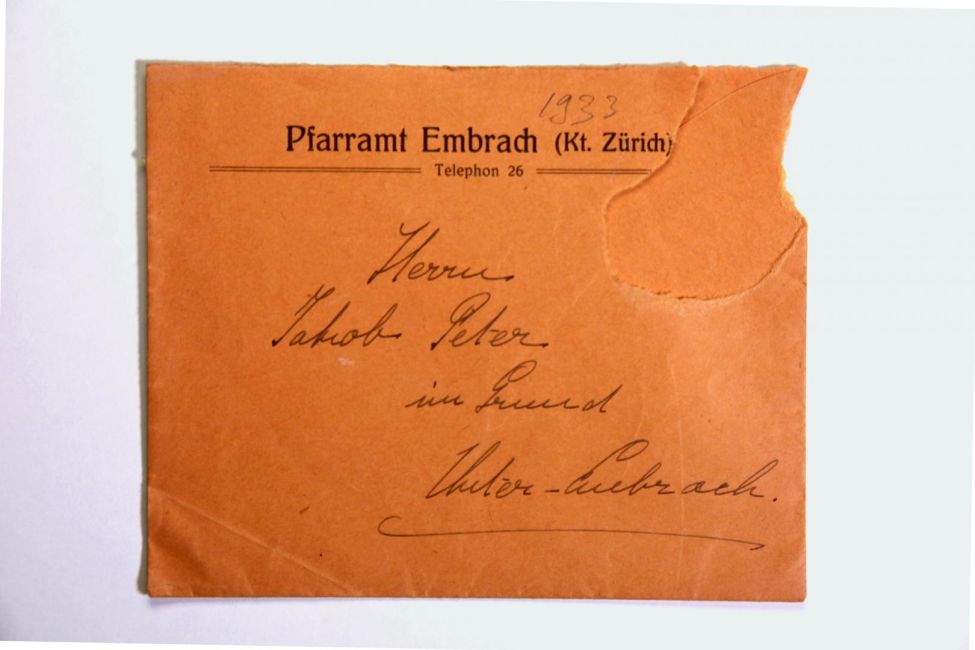 1933
Pfarramt Embrach (Kt. Zürich)
Telephon 26
Herrn
Jakob Peter
im Grund
Unter-Embrach.